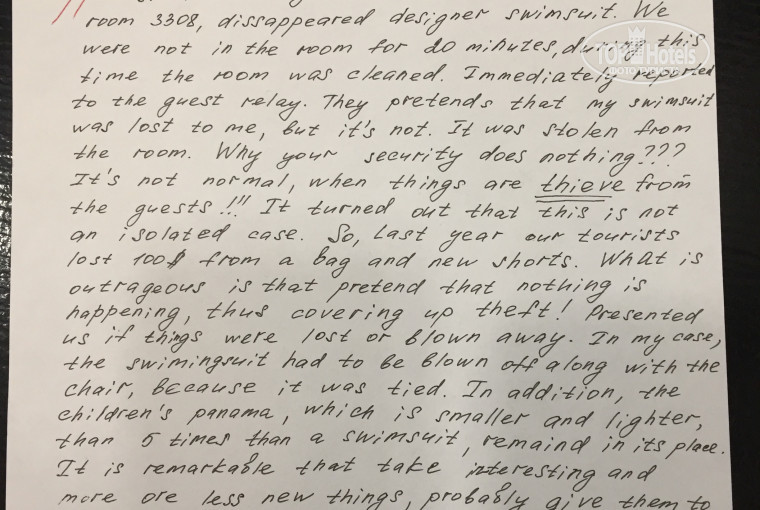 room 3308, dissappeared designer swimsuit. We
were not in the room for 20 minutes, during this
time the room was cleaned. Immediately reported
to the guest relay. They pretends that my swimsuit
was lost to me, but it's not. It was stolen from
the room. Why your security does nothing???
It's not normal, when things are thieve from
the guests!!! It turned out that this is not
an isolated case. So, last year our tourists
lost 100$ from a bag and new shorts. What is
outrageous is that pretend that nothing is
happening, thus covering up theft! Presented
us if things were lost or blown away. In my case,
the swimingsuit had to be blown off along with the
chair, because it was tied. In addition, the
children's panama, which is smaller and lighter,
than 5 times than a swimsuit, remaind in its place.
It is remarkable that take interesting and
more ore less new things, probably give them to
TopHotels